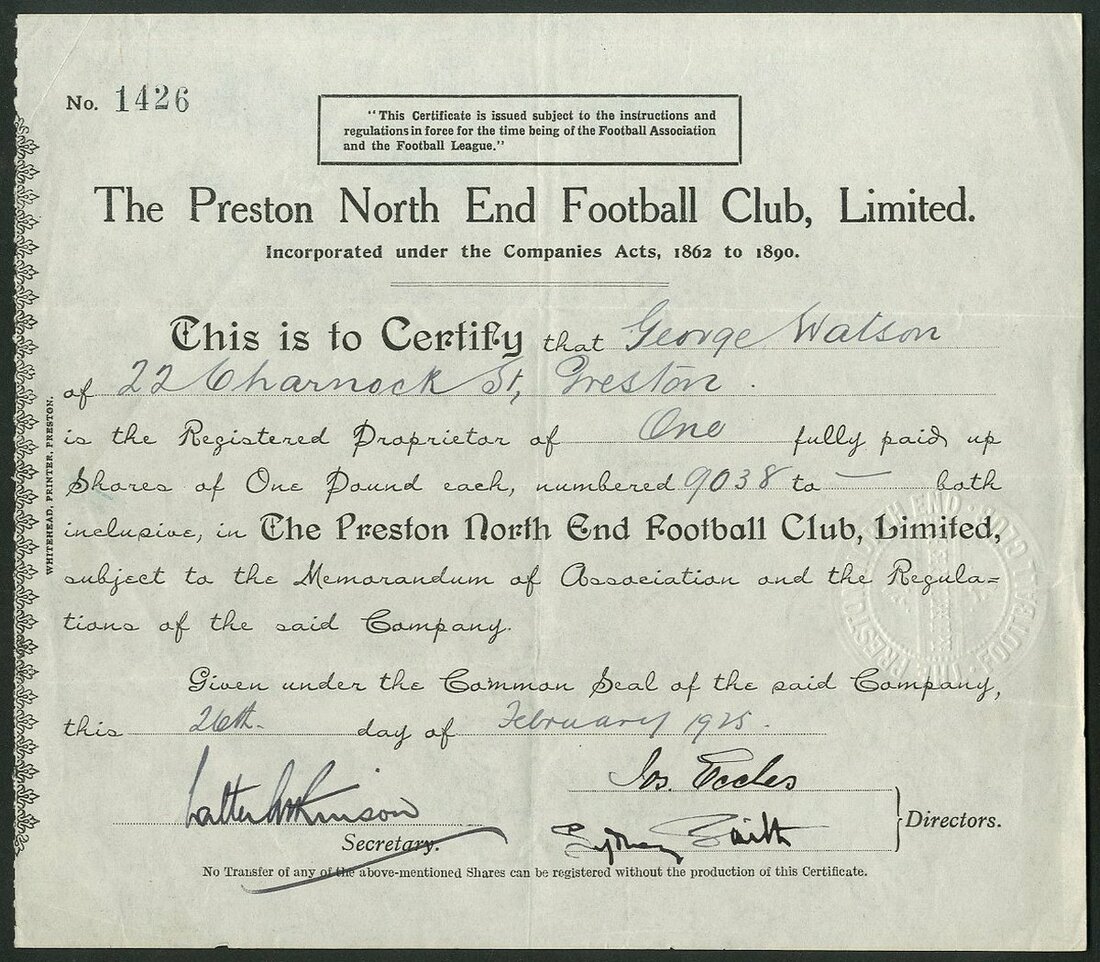 No. 1426
"This Certificate is issued subject to the instructions and
regulations in force for the time being of the Football Association
and the Football League."
The Preston North End Football Club, Limited.
Incorporated under the Companies Acts, 1862 to 1890.
This is to Certify that George Watson
of 22 Charnock St, Preston.
is the Registered Proprietor of One fully paid up
Shares of One Pound each, numbered 9038 to — both
inclusive, in The Preston North End Football Club, Limited,
subject to the Memorandum of Association and the Regula=
tions of the said Company.
Given under the Common Seal of the said Company,
this 26th. day of February 1925.
Jos. Eccles
Walter Atkinson
Sydney
Directors.
Secretary.
No Transfer of any of the above-mentioned Shares can be registered without the production of this Certificate.
WHITEHEAD, PRINTER, PRESTON.
PRESTON NORTH END FOOTBALL CLUB